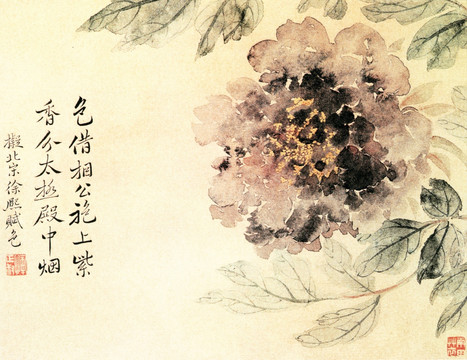 色借相公袍上紫
香分太極殿中烟
擬北宗徐熙賦色